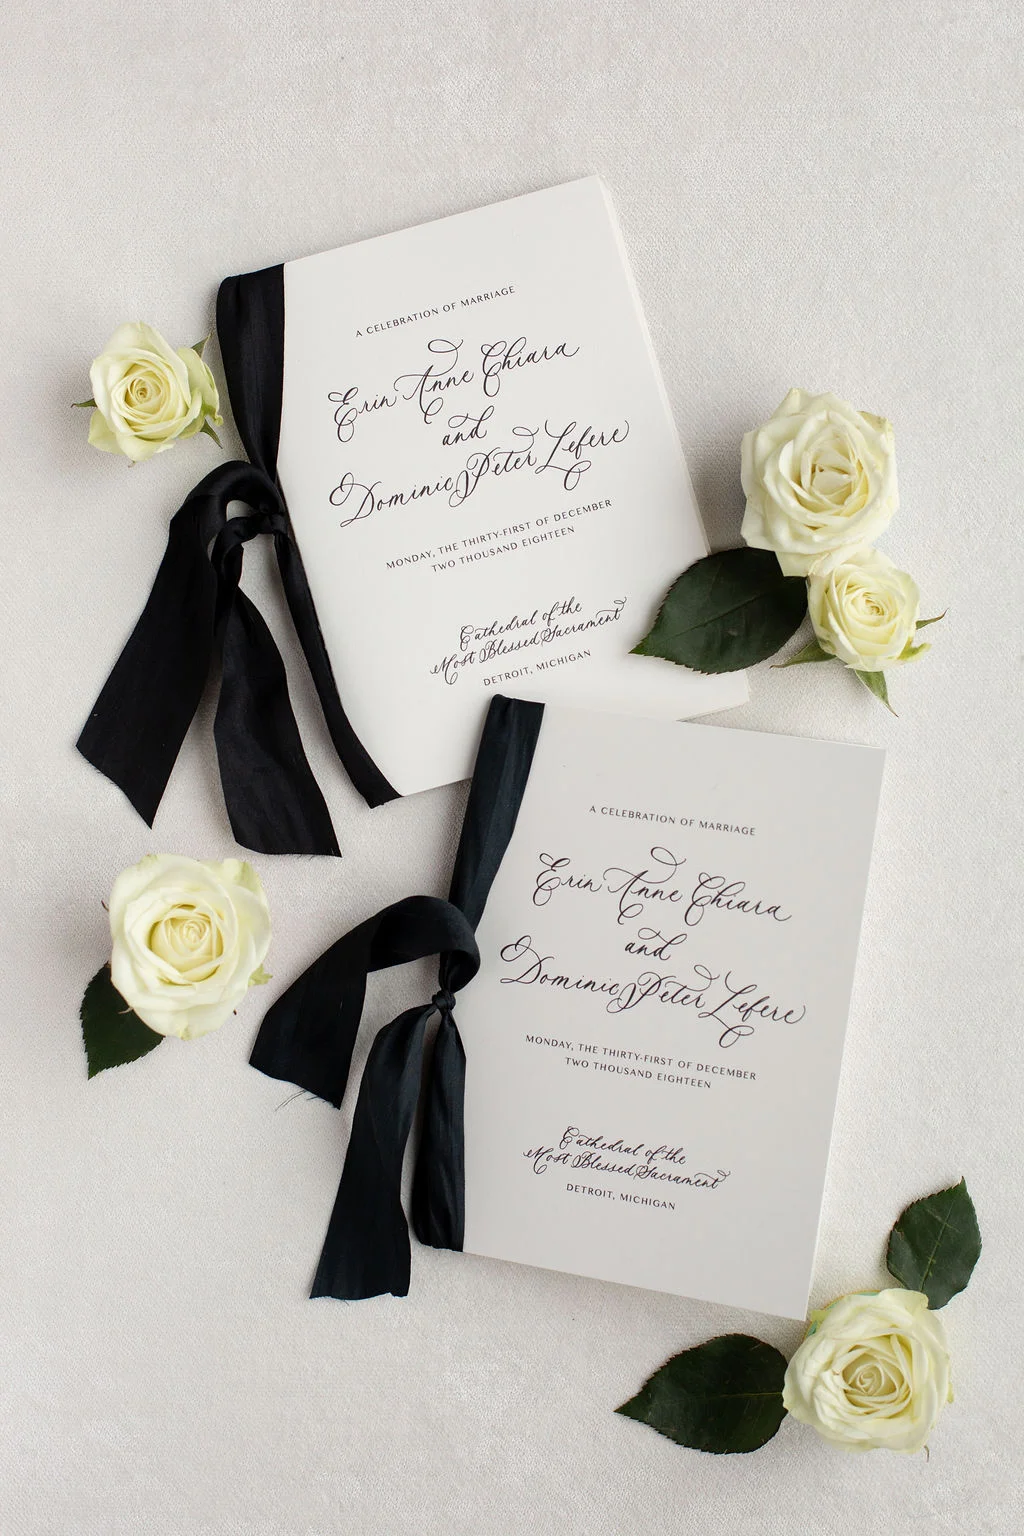 A CELEBRATION OF MARRIAGE
Erin Anne Chiara
and
Dominic Peter Lefere
MONDAY, THE THIRTY-FIRST OF DECEMBER
TWO THOUSAND EIGHTEEN
Cathedral of the
Most Blessed Sacrament
DETROIT, MICHIGAN
A CELEBRATION OF MARRIAGE
Erin Anne Chiara
and
Dominic Peter Lefere
MONDAY, THE THIRTY-FIRST OF DECEMBER
TWO THOUSAND EIGHTEEN
Cathedral of the
Most Blessed Sacrament
DETROIT, MICHIGAN